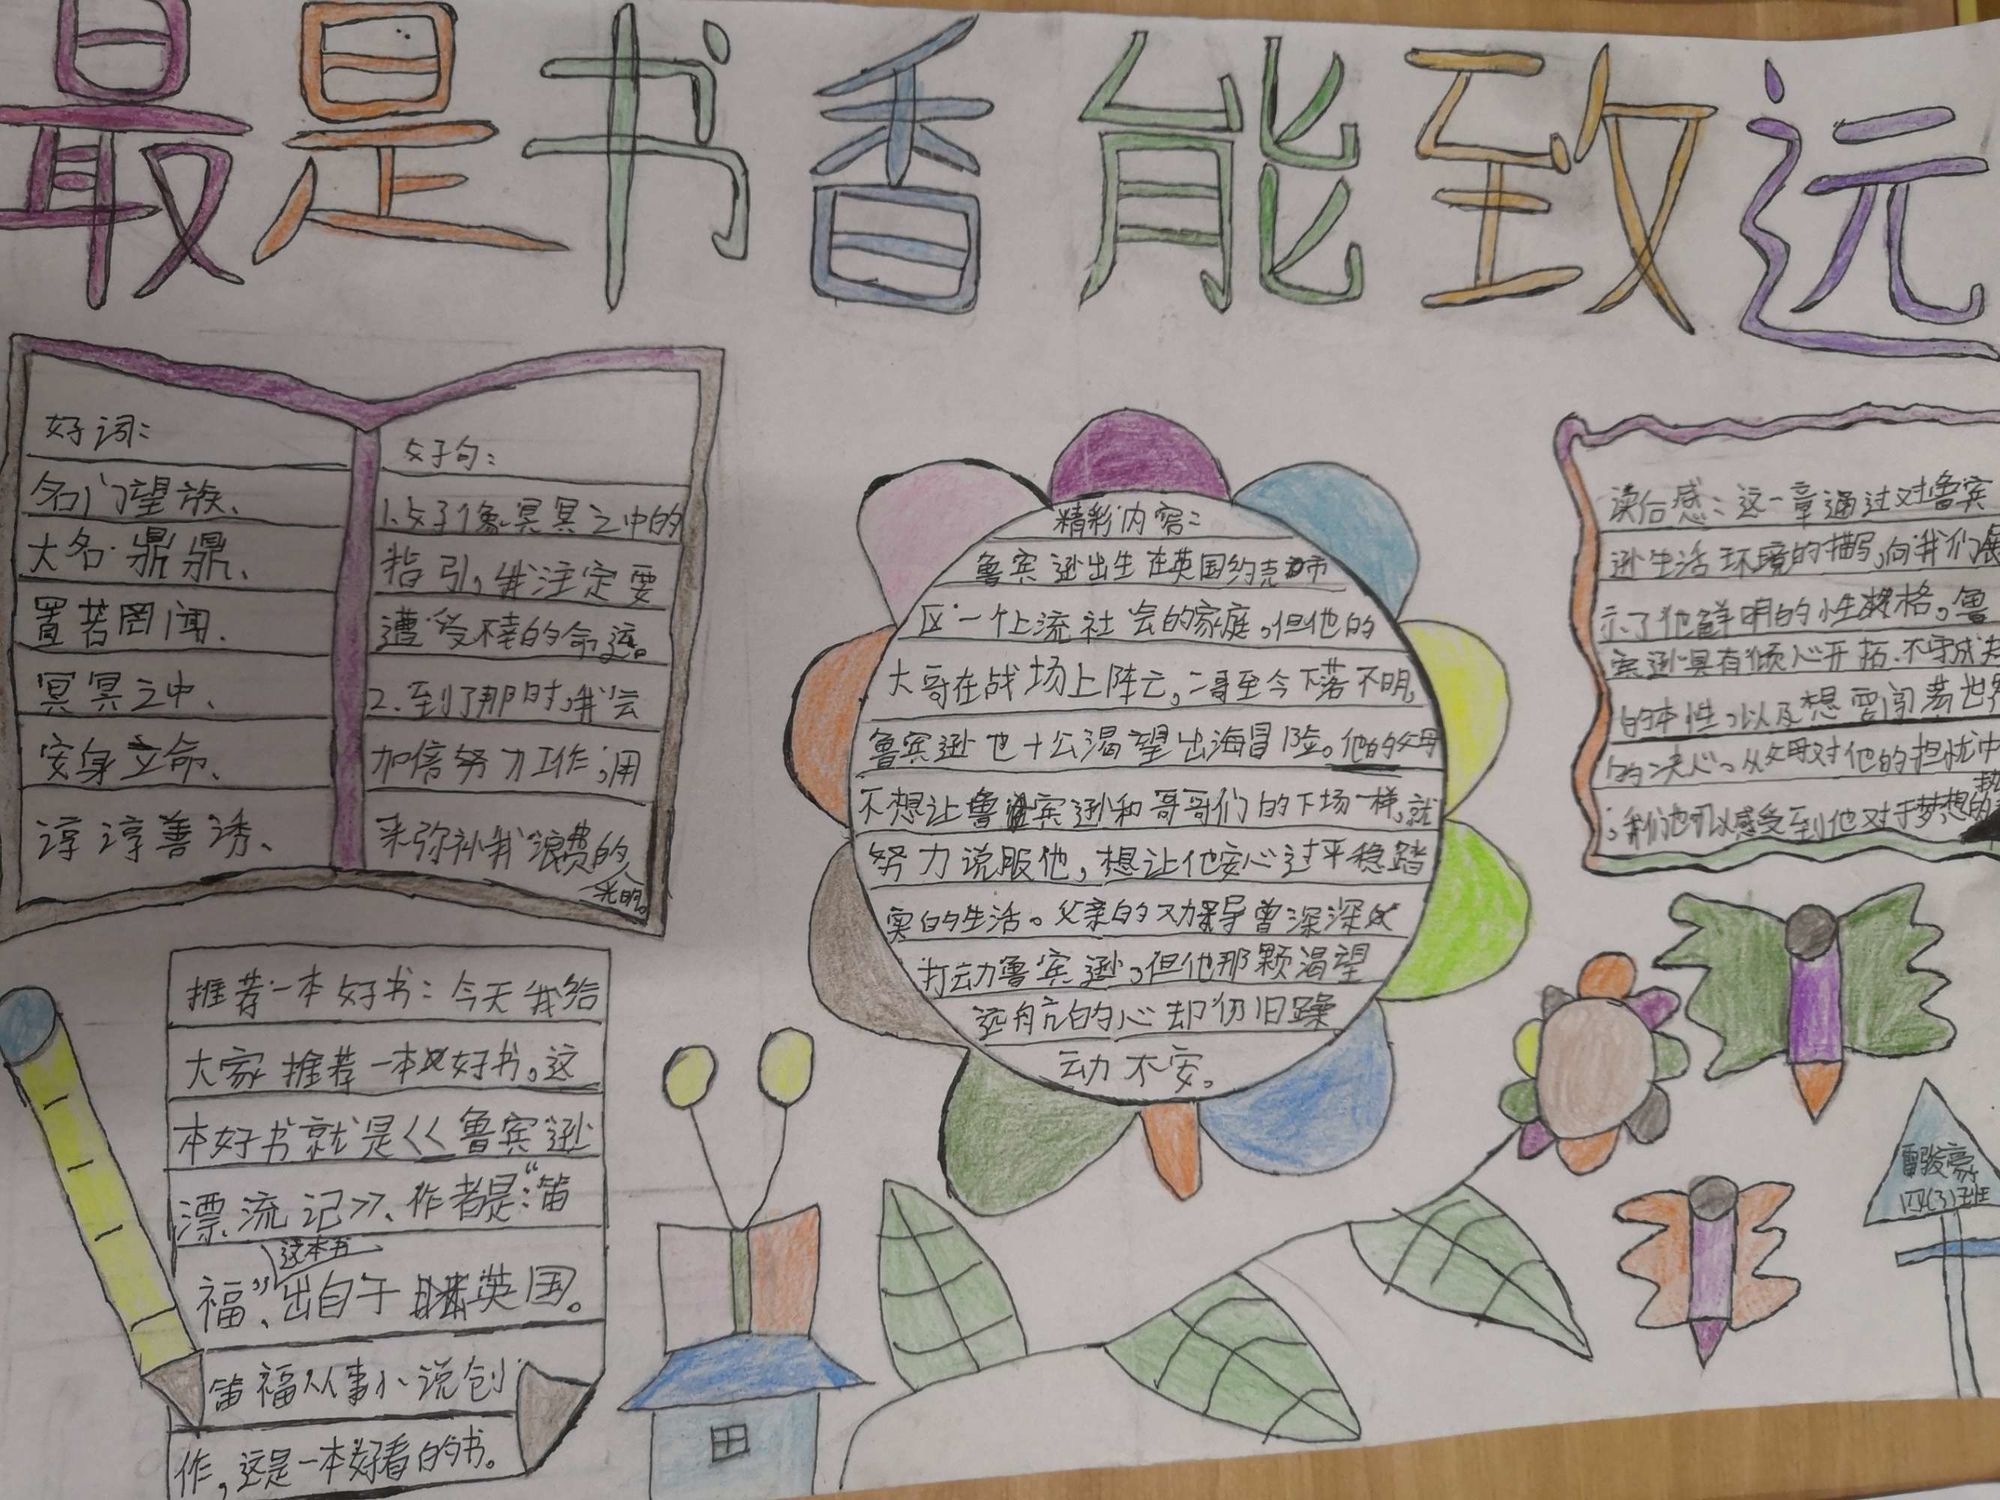 最是书香能致远
好词：
名门望族、
大名鼎鼎、
置若罔闻、
冥冥之中、
安身立命、
谆谆善诱、
好句：
1、好像冥冥之中的
指引，我注定要
遭受不幸的命运。
2.到了那时，我会
加倍努力工作，用
来弥补我浪费的
光阴。
精彩内容：
鲁宾逊出生在英国约克市
区一个上流社会的家庭，但他的
大哥在战场上阵亡，二哥至今下落不明，
鲁宾逊也十分渴望出海冒险。他的父母
不想让鲁宾逊和哥哥们的下场一样，就
努力说服他，想让他安心过平稳踏
实的生活。父亲的劝导曾深深
打动鲁宾逊，但他那颗渴望
远航的心却仍旧躁
动不安。
读后感：这一章通过对鲁宾
逊生活环境的描写，向我们展
示了他鲜明的性格。鲁
宾逊具有倾心开拓、不守成规
的本性，以及想要闯荡世界
的决心。从父母对他的担忧中
，我们也可以感受到他对于梦想的
推荐一本好书：今天我给
大家推荐一本好书。这
本好书就是<<鲁宾逊
漂流记>>、作者是：“笛
福”、这本书出自于英国。
笛福从事小说创
作，这是一本好看的书。
四(3)班